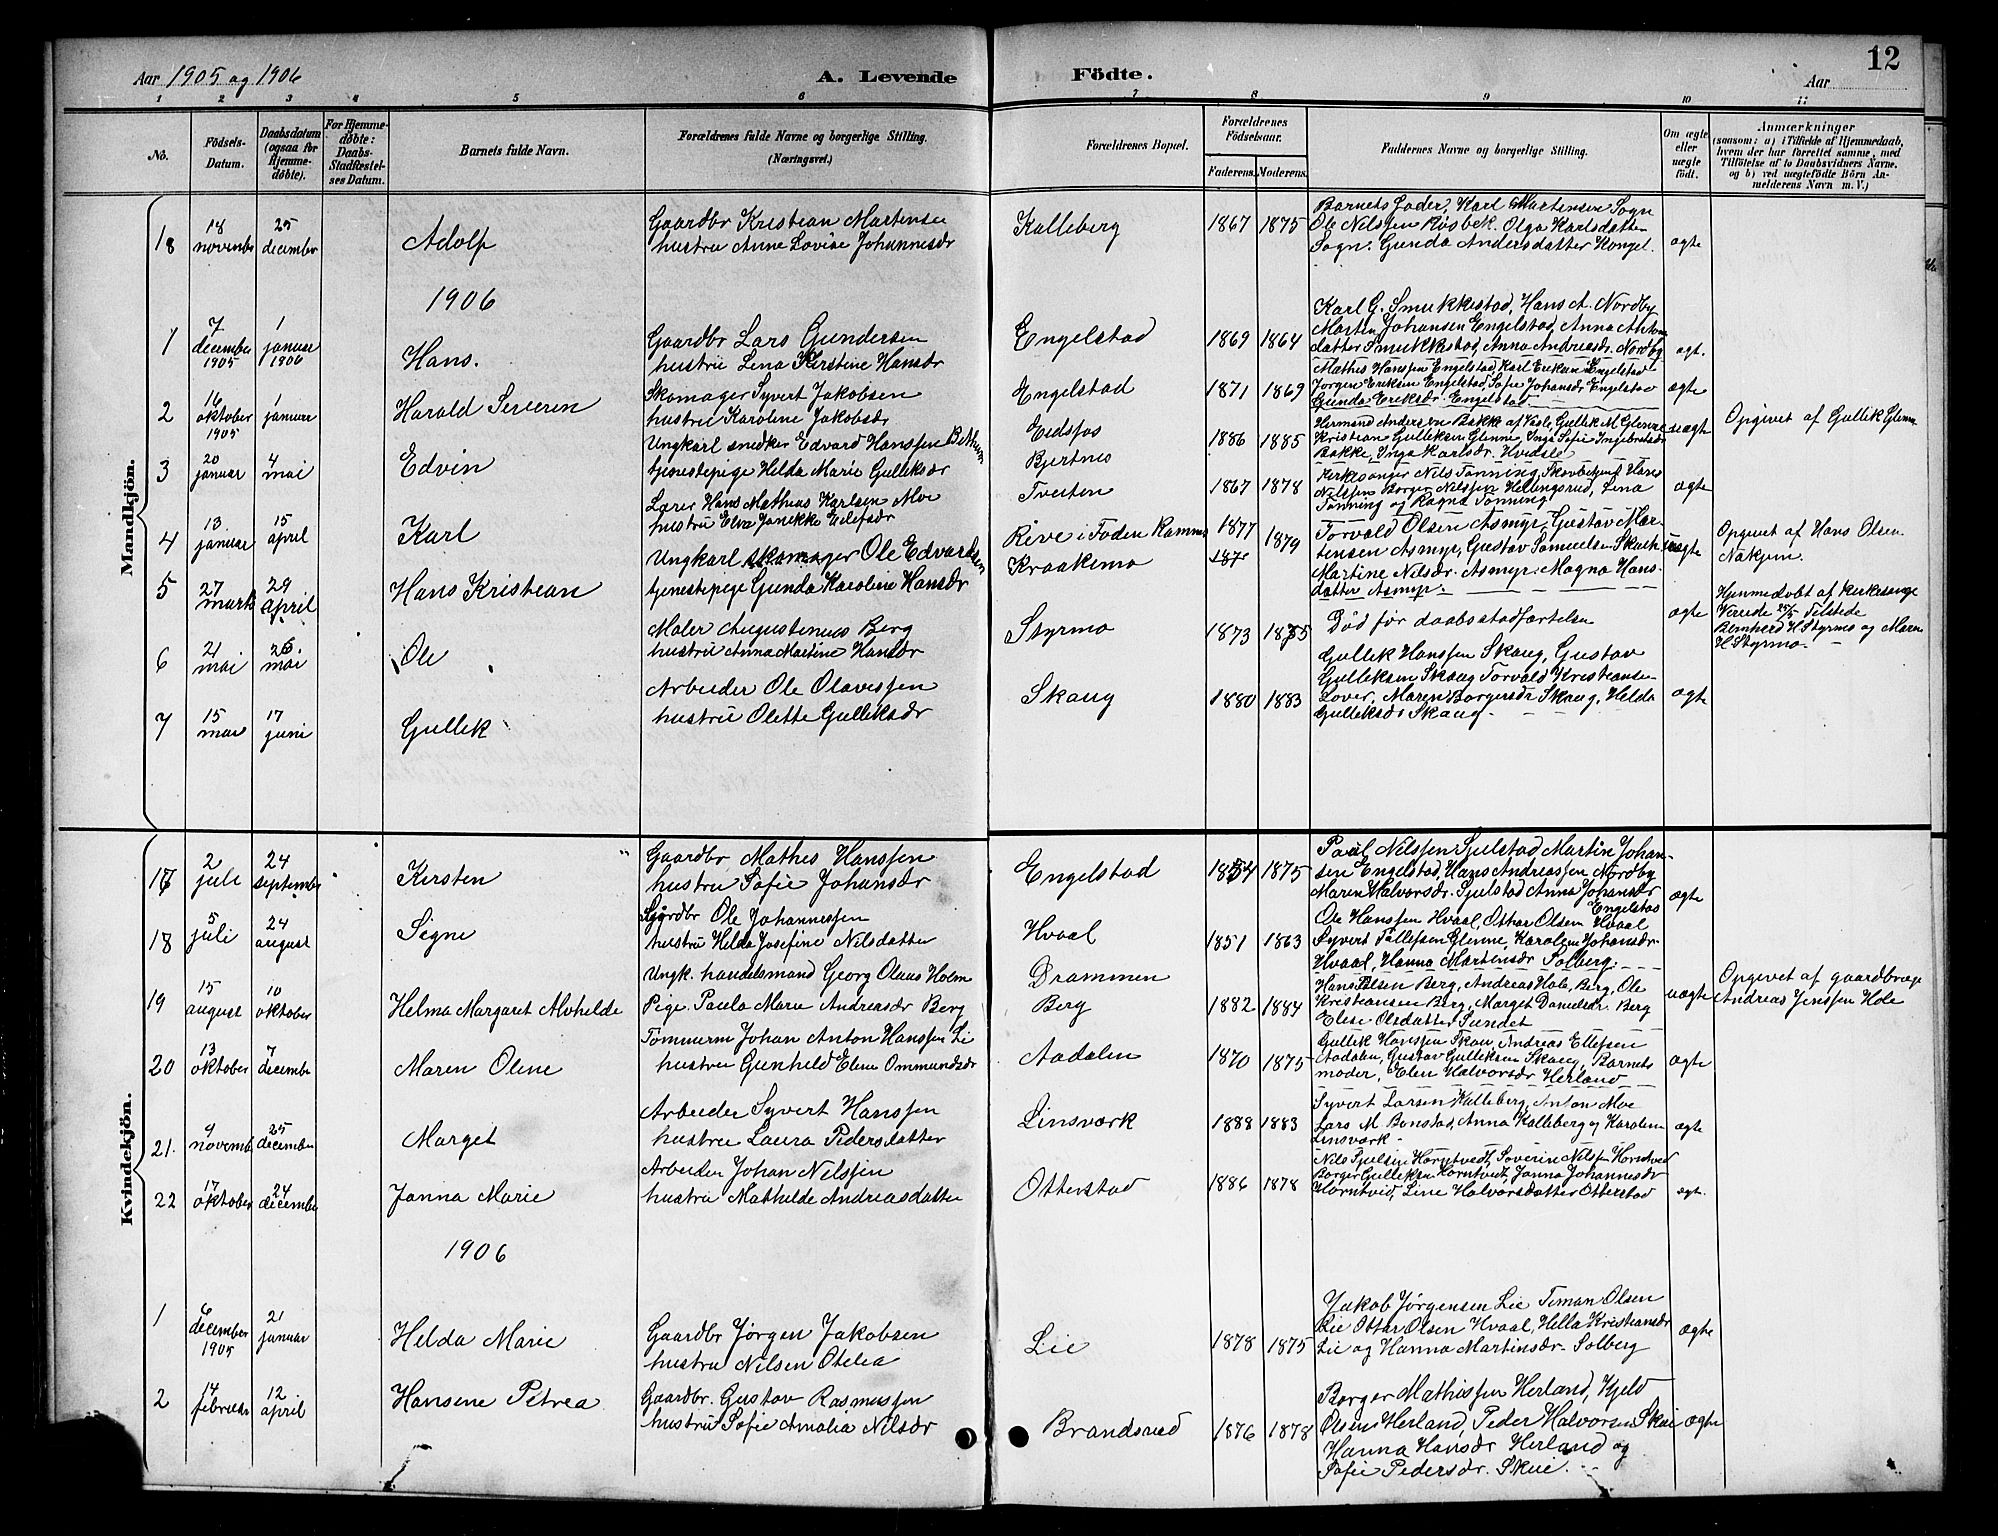 Aar 1905 og 1906
A. Levende Födte.
Aar
12
1 2 3 4 5 6 7 8 9 10 11
No.
Födsels-Datum.
Daabsdatum (ogsaa for Hjemmedøbte).
For Hjemmedøbte: Daabs-Stadfæstelses Datum.
Barnets fulde Navn.
Forældrenes fulde Navne og borgerlige Stilling. (Næringsvei.)
Forældrenes Bopæl.
Forældrenes Födselsaar.
Faderens. Moderens.
Faddernes Navne og borgerlige Stilling.
Om ægte eller uægte födt.
Anmærkninger (saasom: a) i Tilfælde af Hjemmedaab, hvem der har forrettet samme, med Tilföielse af to Daabsvidners Navne, og b) ved uægtefödte Börn Anmelderens Navn m. V.)
Mandkjön.
18
18 november
25 december
Adolf
Gaardbr Kristian Martensen
hustru Anne Lovise Johannesdr
Kalleberg
1867 1875
Barnets Fader, Karl Martensen Sogn
Ole Nilssen Røsbek. Olga Karlsdatter
Sogn. Gunda Andersdatter Kongel.
ægte
1906
1
7 december 1905
1 januar 1906
Hans.
Gaardbr Lars Gundersen
hustru Lena Kirstine Hansdr
Engelstad
1869 1864
Karl G. Smukkestad, Hans A. Nordby
Marten Johansen Engelstad, Anna Anton
datter Smukkestad, Anna Andreasdr. Nordby
ægt.
2
16 oktober 1905
1 januar
Harald Severin
Skomager Syvert Jakobsen
hustru Karoline Jakobsdr
Engelstad
1871 1869
Mathis Hanssen Engelstad, Karl Eriksen Engelstad
Jørgen Eriksen Engelstad, Sofie Johansdr Engelstad
Gunda Eriksdr. Engelstad.
ægte
3
20 januar
4 mai
Edvin
Ungkarl snedker Edvard Hanssen
tjenestepige Helda Marie Gulleksdr
Eidsfos
Bjertnes
1886 1885
Herman Andersen Bakke af Vasle, Gullek M Glenne
Kristian Gulleksen Glenne, Inga Sofie Ingebretsdr
Bakke, Inga Karlsdr. Hvidsle
uægte
Opgivet af Gullik Glenne
4
13. januar
15 april
Karl
Lærer Hans Mathias Karlsen Moe
hustru Elva Janikke Eilefsdr
Tveiten
1867 1878
Kirkesanger Nils Tønning, Skovbetjent Hans
Nilssen Borger Nilssen Hellingsrud, Lina
Tønning og Ragna Tønning
ægte
5
27 marts
29 april
Hans Kristian
Ungkarl skomager Ole Edvardsen
tjenestepige Gunda Karoline Hansdr
Reve i Foden Ramnes
Kraakemo
1877 1879
Torvald Olsen Asmyr, Gustav Mar-
tensen Asmyr, Gustav Samuelsen
Martine Nilsdr. Asmyr. Magna Hans-
datter Asmyr.
uægte
Opgivet af Hans Olsen
Nakjem.
6
21 mai
26. mai
Ole
Maler Augustinius Berg
hustru Anna Martine Hansdr
Styrmo
1873 1875
Død før daabsstadfæstelse
ægte
Hjemmedøbt af kirkesanger
25/5 Tilstede
Bernherd H Styrmo og Maren
H Styrmo.
7
15 mai
17 juni
Gullek
Arbeider Ole Olavessen
hustru Olette Gulleksdr
Skaug
1880 1883
Gullek Hanssen Skaug, Gustav
Gulleksen Skaug Torvald Kristiansen
Lover, Maren Borgersdr Skaug, Helda
Gulleksdr Skaug.
ægte
Kvindekjön.
17
2 juli
24 september
Kirsten
Gaardbr. Mathis Hanssen
hustru Sofie Johansdr
Engelstad
1854 1875
Paul Nilssen Sjulstad Martin Johan-
sen Engelstad, Hans Andreassen Nordby
Maren Halvorsdr. Sjulstad Anna Johansdr
Engelstad
ægte
18
5 juli
24 august
Signe
Gaardbr Ole Johannessen
hustru Helda Josefine Nilsdatter
Hvaal
1851 1863
Ole Hanssen Hvaal, Othar Olsen Hvaal
Syvert Tollefsen Glenne, Karolen Johansdr.
Hvaal, Hanna Martensdr Solberg.
19
15 august
10 oktober
Helma Margaret Alvhelde
Ungk. handelsmand Georg Olaus Holm
Pige Paula Marie Andreasdr Berg
Drammen
Berg
1882 1884
Hans Olsen Berg, Andreas Hole, Berg, Ole
Kristiansen Berg, Marget Danielsdr. Berg
Elise Olsdatter Sundet
uægte
Opgivet af gaardbruger
Andreas Jenssen Hole
20
13 oktober
7 december
Maren Oline
Tømmerm Johan Anton Hanssen Li
hustru Gunhild Eline Ommundsdr
Aadalen
1870 1875
Gullik Hanssen Skau, Andreas Ellefsen
Aadalen, Gustav Gulleksen Skaug, Barnets
moder, Elen Halvorsdr Herland
ægte
21.
4 novemb
25 december
Marget
Arbeider Syvert Hanssen
hustru Laura Pedersdatter
Linsværk
1888 1883
Syvert Larsen Kalleberg, Anton Moe
Lars M. Bonstad, Anna Kalleberg og Karoline
Linsværk
ægte
22
17 oktober
24 december
Janna Marie
Arbeider Johan Nilssen
hustru Mathilde Andreasdatter
Otterstad
1886 1878
Nils Paulsen Horntvedt, Severin Nilsen Horntved
Borger Gulleksen Horntvedt, Janna Johannesdr
Horntvid, Line Halvorsdatter Otterstad
ægt.
1906
1
6 december 1905
21 januar
Helda Marie
Gaardbr Jørgen Jakobsen
hustru Nilsen Otelia
Lie
1878 1875
Jakob Jørgensen Lie Timan Olsen
Lie Ottar Olsen Hvaal, Hella Kristiansdr
Lie og Hanna Martinsdr. Solberg
ægte
2
14 februar
12 april
Hansine Petrea
Gaardbr. Gustav Rasmussen
hustru Sofie Amalia Nilsdr
Brandsrud
1876 1878
Borger Mathissen Herland, Kjeld
Olsen Herland, Peder Halvorsen Skui
Hanna Hansdr Herland og
Sofie Pedersdr. Skui.
ægte